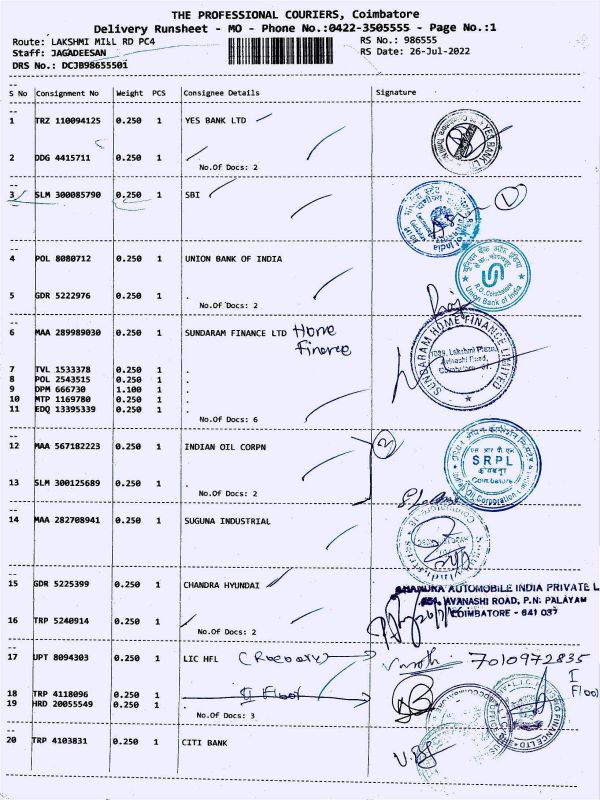 THE PROFESSIONAL COURIERS, Coimbatore
Delivery Runsheet - MO - Phone No.:0422-3505555 - Page No.:1
Route: LAKSHMI MILL RD PC4 RS No.: 986555
Staff: JAGADEESAN RS Date: 26-Jul-2022
DRS No.: DCJB98655501
S No Consignment No Weight PCS Consignee Details Signature
1 TRZ 110094125 0.250 1 YES BANK LTD
YES BANK LTD
2 DDG 4415711 0.250 1 .
No.Of Docs: 2
3 SLM 300085790 0.250 1 SBI
1
4 POL 8080712 0.250 1 UNION BANK OF INDIA
R.O. Coimbatore
Union Bank of India
5 GDR 5222976 0.250 1 .
No.Of Docs: 2
6 MAA 289989030 0.250 1 SUNDARAM FINANCE LTD Home
Finance
SUNDARAM HOME FINANCE LIMITED
1089, Lakshmi Plaza,
Avinashi Road,
Coimbatore
7 TVL 1533378 0.250 1 .
8 POL 2543515 0.250 1 .
9 DPM 666730 1.100 1 .
10 MTP 1169780 0.250 1 .
11 EDQ 13395339 0.250 1 .
No.Of Docs: 6
12 MAA 567182223 0.250 1 INDIAN OIL CORPN
2
SRPL
Coimbatore
Indian Oil Corporation
13 SLM 300125689 0.250 1 .
No.Of Docs: 2
14 MAA 282708941 0.250 1 SUGUNA INDUSTRIAL
15 GDR 5225399 0.250 1 CHANDRA HYUNDAI
CHANDRA AUTOMOBILE INDIA PRIVATE L
AVANASHI ROAD, P.N. PALAYAM
COIMBATORE - 641 037
16 TRP 5240914 0.250 1 .
No.Of Docs: 2
17 UPT 8094303 0.250 1 LIC HFL
7010972835
I
Floo
18 TRP 4118096 0.250 1 II Floor
19 HRD 20055549 0.250 1 .
No.Of Docs: 3
20 TRP 4103831 0.250 1 CITI BANK